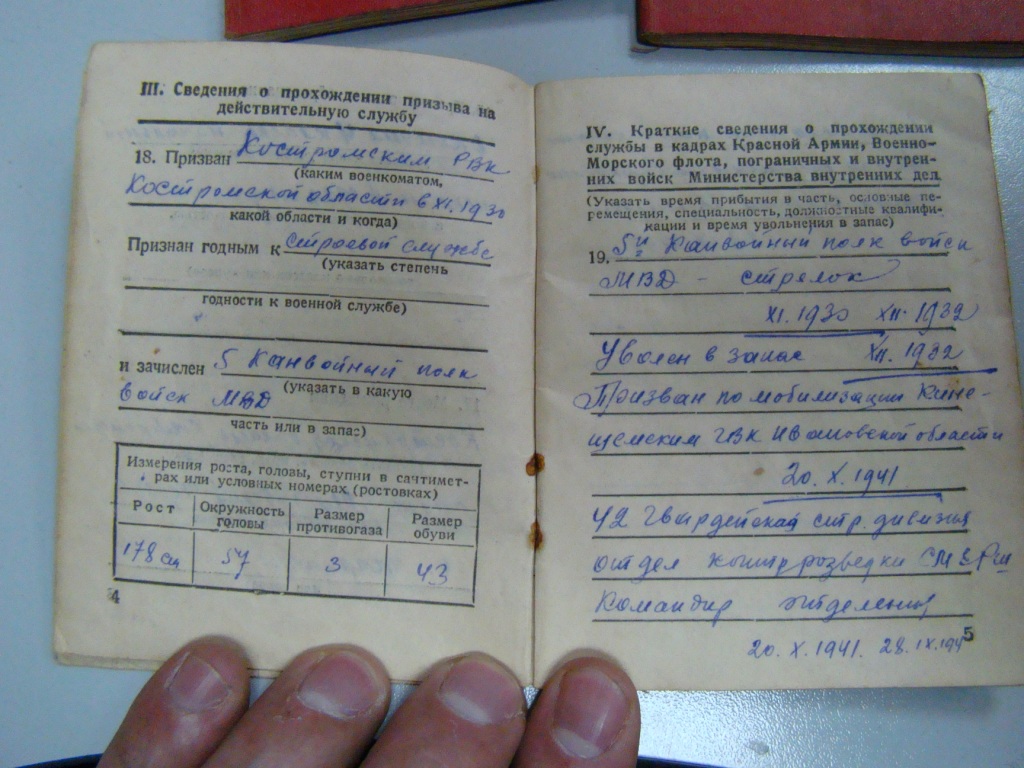 III. Сведения о прохождении призыва на
действительную службу
18. Призван Костромским РВК
(каким военкоматом,
Костромской области в XI. 1930
какой области и когда)
Признан годным к строевой службе
(указать степень
годности к военной службе)
и зачислен 5 Канвойный полк
(указать в какую
войск МВД
часть или в запас)
Измерения роста, головы, ступни в сантимет-
рах или условных номерах (ростовках)
Рост Окружность головы Размер противогаза Размер обуви
178 см 57 3 43
4
IV. Краткие сведения о прохождении
службы в кадрах Красной Армии, Военно-
Морского флота, пограничных и внутрен-
них войск Министерства внутренних дел
(Указать время прибытия в часть, основные пе-
ремещения, специальность, должностные квалифи-
кации и время увольнения в запас)
19. 5й Канвойный полк войск
МВД - стрелок
XI. 1930 XII. 1932
Уволен в запас XII. 1932
Призван по мобилизации Кине-
щемским ГВК Ивановской области
20. X. 1941
42 гвардейская стр. дивизия
отдел контрразведки СМЕРШ
Командир отделения
20. X. 1941. 28. IX. 194
5